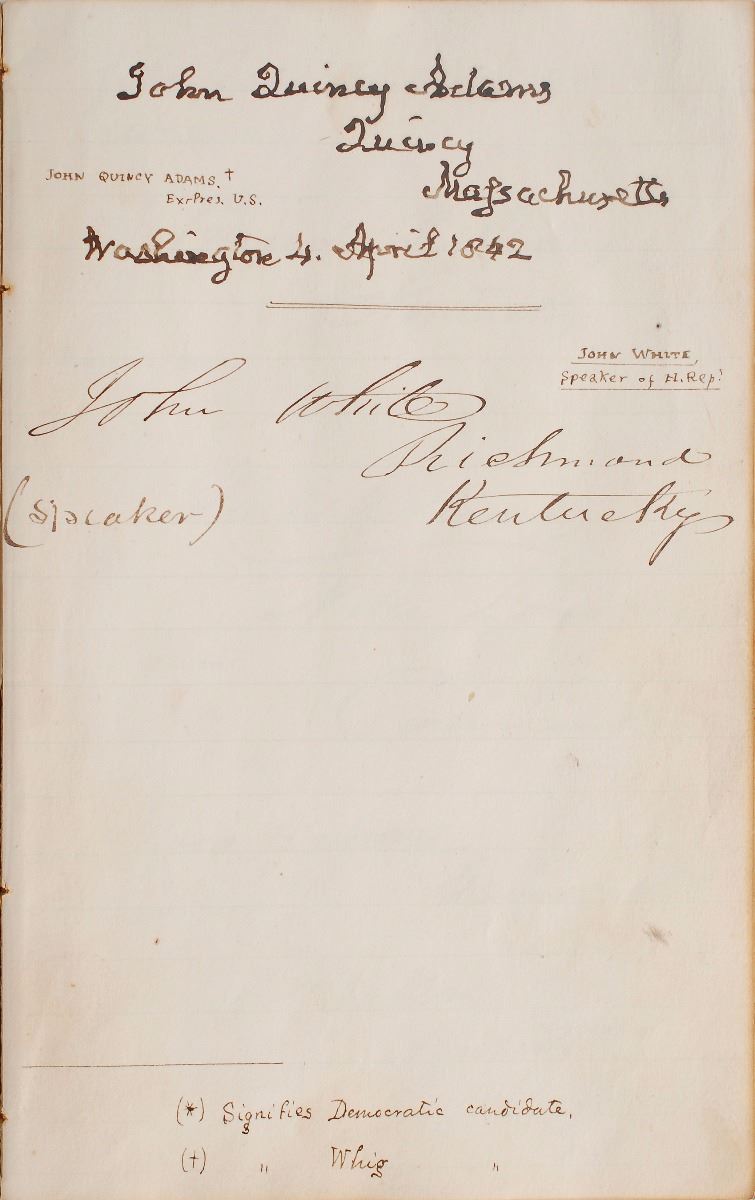 John Quincy Adams
Quincy
JOHN QUINCY ADAMS. †
Ex-Pres. U.S.
Massachusetts
Washington 4. April 1842
JOHN WHITE,
Speaker of H. Rep.
John White
Richmond
(Speaker)
Kentucky
(*) Signifies Democratic candidate.
(†) " Whig "